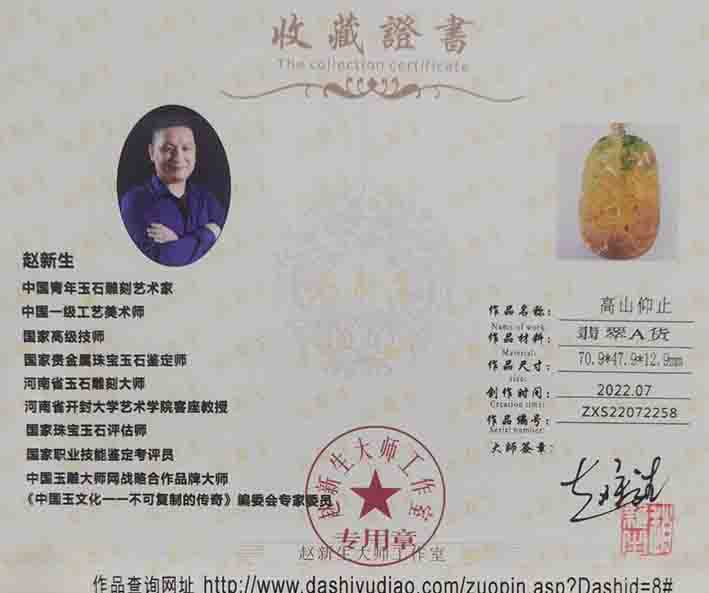 收藏證書
The collection certificate
赵新生
中国青年玉石雕刻艺术家
中国一级工艺美术师
国家高级技师
国家贵金属珠宝玉石鉴定师
河南省玉石雕刻大师
河南省开封大学艺术学院客座教授
国家珠宝玉石评估师
国家职业技能鉴定考评员
中国玉雕大师网战略合作品牌大师
《中国玉文化一一不可复制的传奇》编委会专家委员
作品名称: 高山仰止
Name of work:
作品材料: 翡翠A货
Material:
作品尺寸: 70.9*47.9*12.9mm
size:
创作时间: 2022.07
Creation time:
作品编号: ZXS22072258
Serial number:
大师签章:
赵新生大师工作室
专用章
赵新生大师工作室
作品查询网址 http://www.dashiyudiao.com/zuopin.asp?Dashid=8#